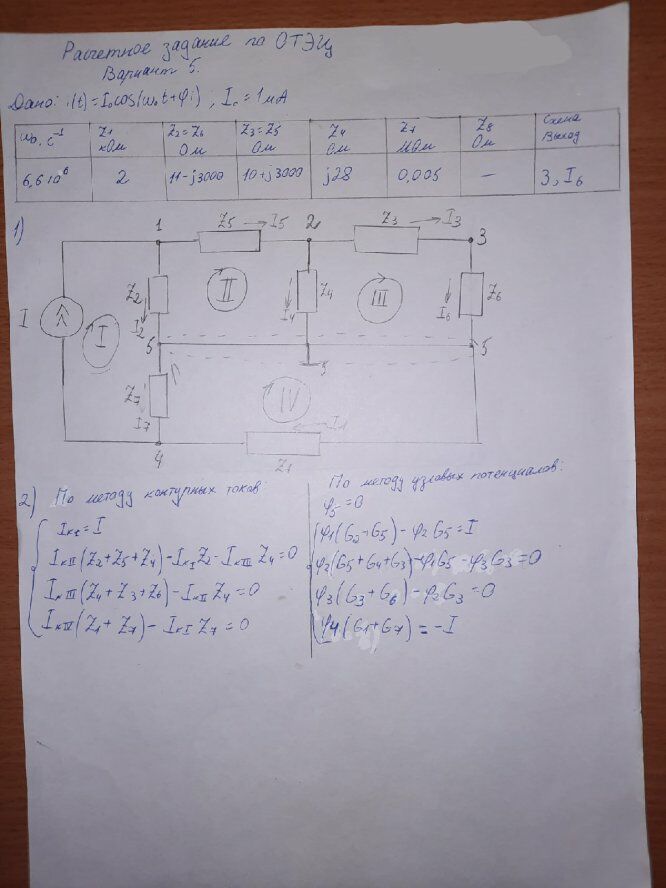 Расчетное задание по ОТЭЦ
Вариант 5.
Дано: i(t)=I₀cos(ω₀t+φi) ; I₀=1мА
ω₀, с⁻¹ Z1 кОм Z2=Z6 Ом Z3=Z5 Ом Z4 Ом Z7 МОм Z8 Ом Схема Выход
6,6·10⁶ 2 11-j3000 10+j3000 j28 0,005 — 3, I6
1)
1 Z5 I5 2 Z3 I3 3
I I Z2 I2 II Z4 I4 III Z6 I6
5 5 5
Z7 I7 IV I1
4 Z1
2) По методу контурных токов:
IкI=I
IкII(Z2+Z5+Z4)-IкIZ2-IкIIIZ4=0
IкIII(Z4+Z3+Z6)-IкIIZ4=0
IкIV(Z1+Z7)-IкIZ7=0
По методу узловых потенциалов:
φ5=0
φ1(G2+G5)-φ2G5=I
φ2(G5+G4+G3)-φ1G5-φ3G3=0
φ3(G3+G6)-φ2G3=0
φ4(G1+G7)=-I